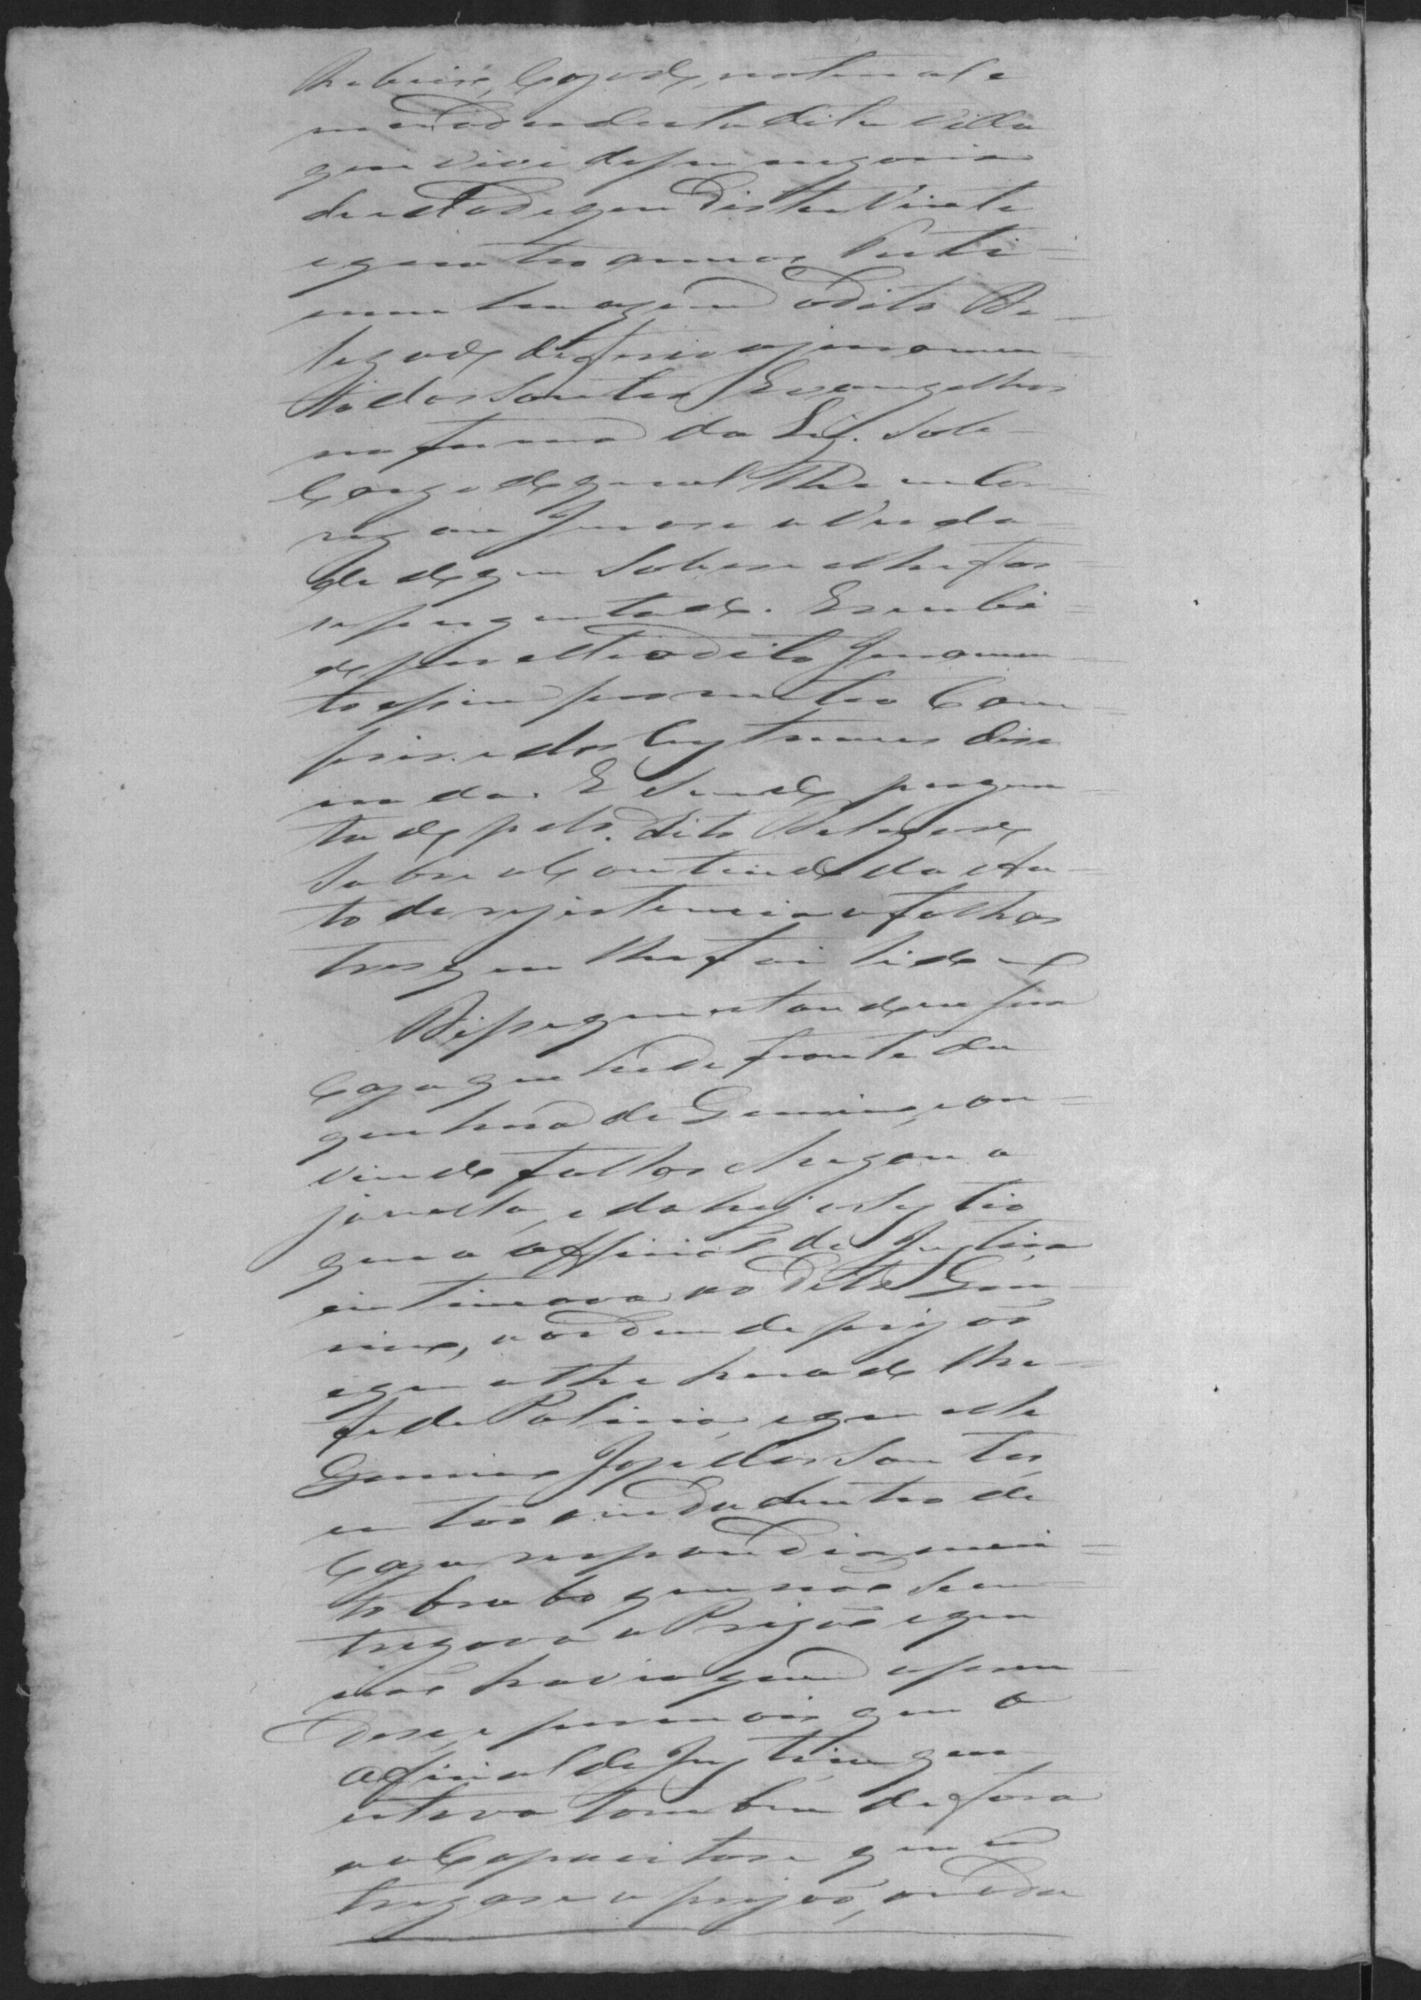 Ribeiro, Cazado, natural e
morador desta dita Villa
que vive de seu negocio
de idade que disse ter Vinte
e quatro annos testi=
munha a quem o dito De=
legado deferio o juramen=
to dos Santos Evangelhos
na forma da Lei. Sob
Cargo do qual lhe encar=
regou jurase a Verda=
de do que Soubese e lhe fos=
se perguntado. E recebi=
do por elle o dito juramen=
to asim prometeo Com=
prir. e dos Custumes dise
nada. E Sendo pergun=
tado pelo dito Delegado
Sobre o Contiudo do Au=
to de rezistencia a folhas
tres que lhe foi lido
Dise que estando em sua
Caza que he de fronte da
que hera de Gemino, e ou=
vindo fallar chegou a
janella, e dahi asistio
que o official de Justiça
intimava ao dito Ge=
mino, a ordem de prizaõ
e que elle hera do Che=
fe de Policia, e que elle
Gemino Joze dos Santos,
entaõ ainda dentro de
Caza respondia mui=
to brabo que naõ Se en=
tregava a Prizaõ e que
naõ havia quem o pren=
dese, e por mais que o
Oficial de Justiça que
estava tambem de fora
o Capacitase que Se en=
tregase a prizaõ, ainda